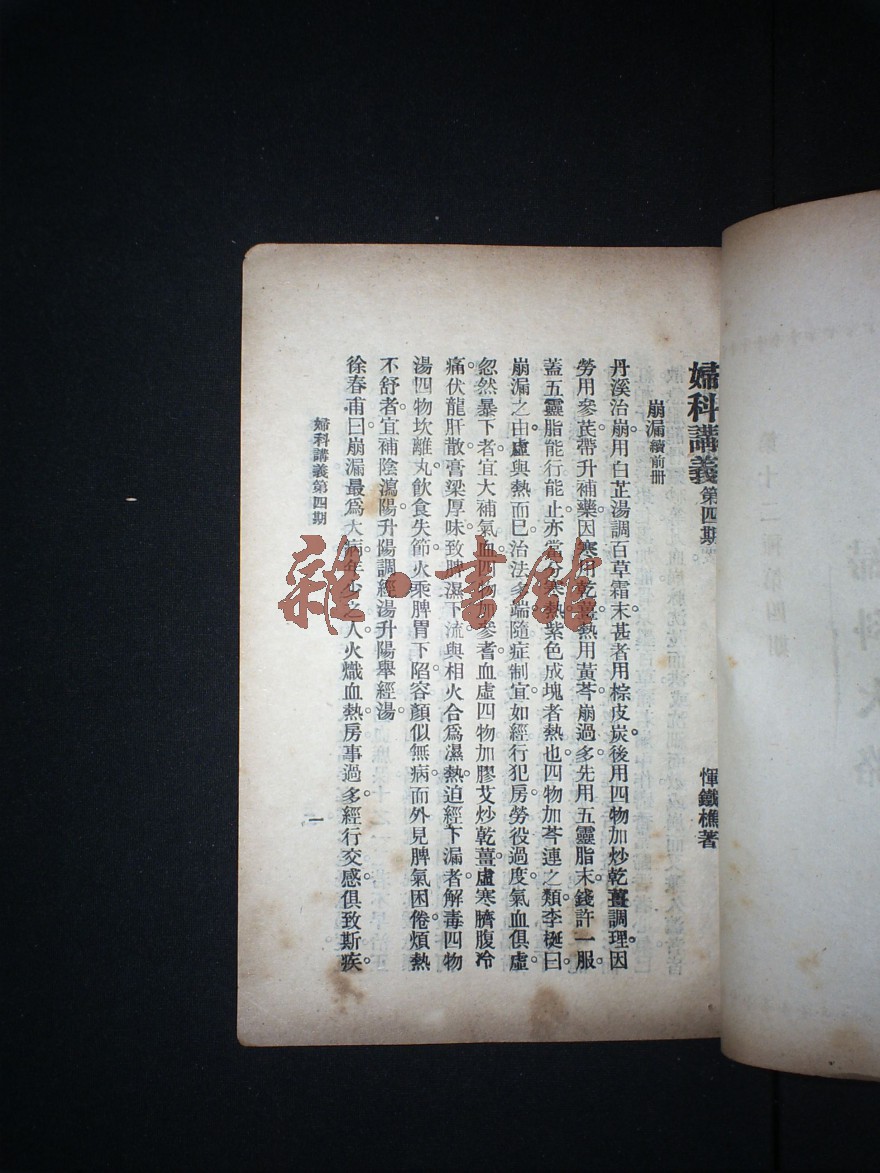 婦科講義 第四期
惲鐵樵著
崩漏 續前册
丹溪治崩用白芷湯調百草霜末甚者用棕皮炭後用四物加炒乾薑調理因
勞用參芪帶升補藥因寒用乾薑熱用黃芩崩過多先用五靈脂末錢許一服
蓋五靈脂能行能止亦當分寒熱紫色成塊者熱也四物加芩連之類李梴曰
崩漏之由虛與熱而已治法多端隨症制宜如經行犯房勞役過度氣血俱虛
忽然暴下者宜大補氣血四物加參耆血虛四物加膠艾炒乾薑虛寒臍腹冷
痛伏龍肝散膏粱厚味致脾濕下流與相火合爲濕熱迫經下漏者解毒四物
湯四物坎離丸飲食失節火乘脾胃下陷容顏似無病而外見脾氣困倦煩熱
不舒者宜補陰瀉陽升陽調經湯升陽舉經湯
徐春甫曰崩漏最爲大病年少之人火熾血熱房事過多經行交感俱致斯疾
婦科講義第四期
一
雜·書館
第十二種第四期